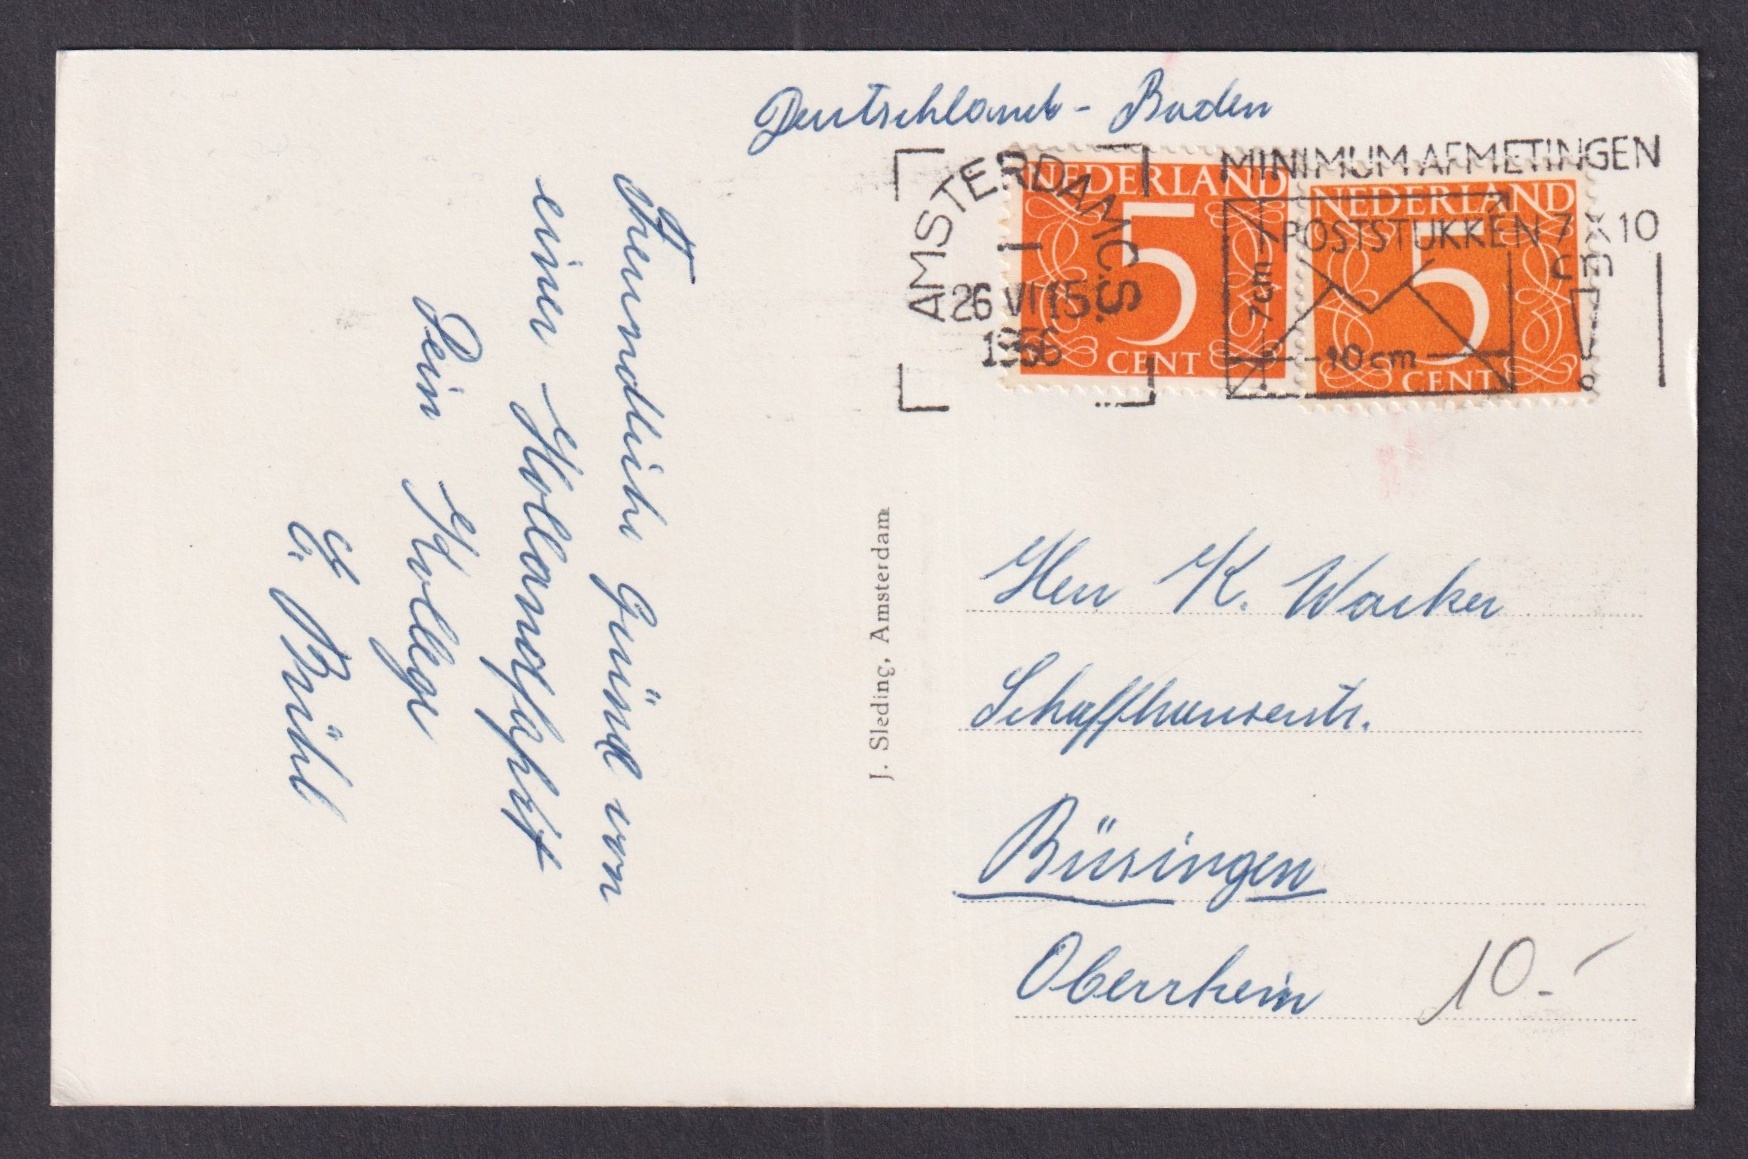 Deutschland - Baden
AMSTERDAM C.S.
1
26 VI 15
1956
NEDERLAND
5
CENT
NEDERLAND
5
CENT
MINIMUM AFMETINGEN
POSTSTUKKEN 7 X 10
cm
7 cm
10 cm
Freundliche Grüße von
einer Hollandfahrt
Dein Kollege
Brühl
J. Sleding, Amsterdam
Herr K. Wacker
Schaffhauserstr.
Büsingen
Oberrhein
10.-